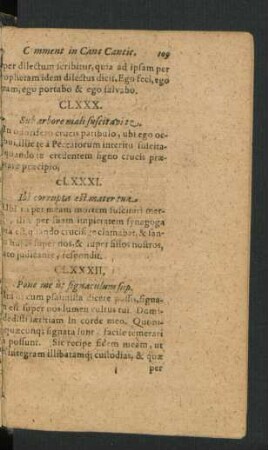 Comment in Cant Cantic. 109
per dilectum scribitur, quia ad ipsam per
opheram idem dilectus dicit. Ego feci, ego
ram, ego portabo & ego salvabo.
CLXXX.
Sub arbore mali suscitavi te
In odorifero crucis patibulo, ubi ego oc-
illic te à Peccatorum interitu suscita
quando te credentem signo crucis præ
præcipio,
CLXXXI.
Ibi corrupta est mater tua
per meam mortem suscitari
per suam impietatem synagoga
crucifi clamabat, & san-
super nos, & super filios nostros,
judicante, respondit.
CLXXXII,
Pone me ut signaculum sup.
cum psalmista dicere possis, signa
est super nos lumen vultus tui Domi-
dedisti lætitiam in corde meo. Quem-
quæcunq; signata sunt facile temerari
possunt. Sic recipe fidem meam, ut
integram illibatamq; custodias, & quæ
per